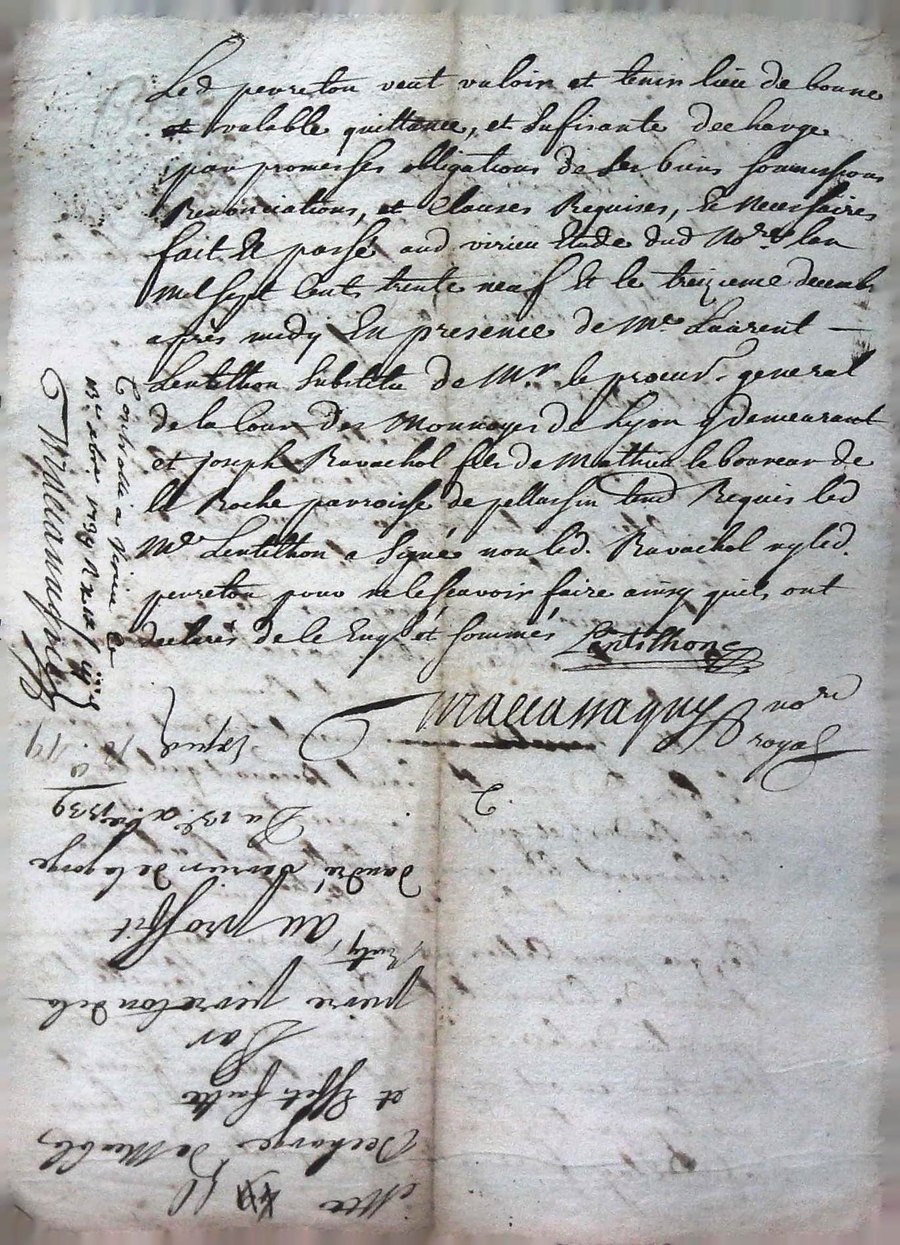 Led peureton veut valoir et tenir lieu de bonne
et valable quittance, et sufisante decharge
par promesses obligations de ses biens soumissions
Renonciations, et clauses Requises, Et necessaires
fait Et passé aud virieu Etude dud No.re lan
Mil sept cents trente neuf Et le treizieme decemb.
après midy En presence de Me Laurent —
Lentithon substitu de Mr. le procur.r general
de la Cour des Monnoyes de Lyon y demeurant
et joseph Ravachol fils de Mathieu le bonveur de
la Roche parroisse de pellussin Requis led
Me Lentithon a signé non led. Ravachol ny led.
peureton pour ne le sçavoir faire ainsy quils ont
declarés de le Enq. et sommés Lentithon
no.re
royal
Controllé a Virieu le
13e xbre 1739 Reçu
Expedié
Du 13e xbre 1739
dandré
au proffit
pierre peureton de la
Par
et Effets faitte
Decharge de Meubles